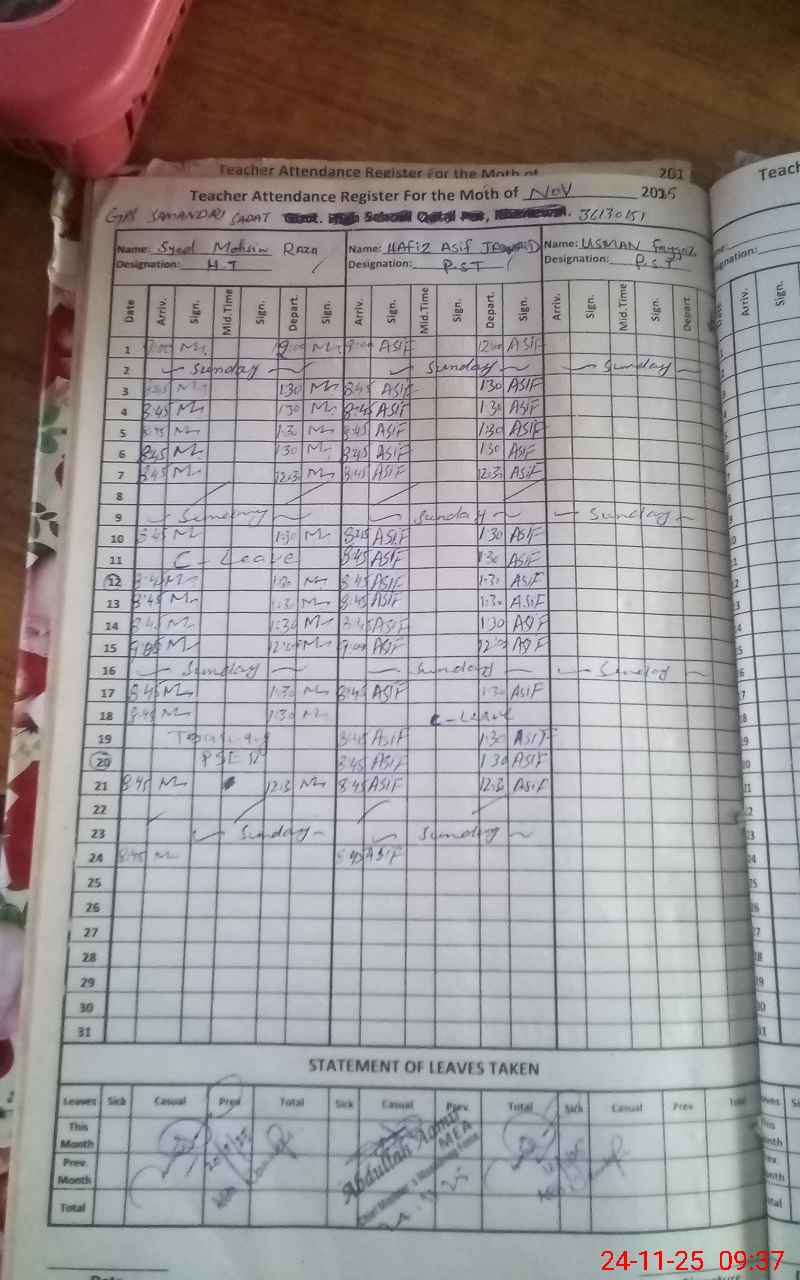 Teacher Attendance Register For the Moth of 201
Teacher Attendance Register For the Moth of Nov 2025
GPS SAMANDRI SADAT 36130151
Name: Syed Mohsin Raza Name: HAFIZ Asif Name: USMAN
Designation: H.T Designation: P.S.T Designation: P.S.T
Date Arriv. Sign. Mid.Time Sign. Depart. Sign. Arriv. Sign. Mid.Time Sign. Depart. Sign. Arriv. Sign. Mid.Time Sign. Depart.
1 9:00 ASIF 12:00 ASIF
2 Sunday Sunday Sunday
3 1:30 8:45 ASIF 1:30 ASIF
4 8:45 1:30 8:45 ASIF 1:30 ASIF
5 1:30 8:45 ASIF 1:30 ASIF
6 8:45 1:30 8:45 ASIF 1:30 ASIF
7 8:45 12:3 8:45 ASIF 12:3 ASIF
8
9 Sunday Sunday Sunday
10 8:45 1:30 8:45 ASIF 1:30 ASIF
11 C-Leave 8:45 ASIF 1:30 ASIF
12 8:45 1:30 8:45 ASIF 1:30 ASIF
13 8:45 1:30 8:45 ASIF 1:30 ASIF
14 8:45 1:30 8:45 ASIF 1:30 ASIF
15 9:00 12:00 9:00 ASIF 12:00 ASIF
16 Sunday Sunday Sunday
17 8:45 1:30 8:45 ASIF 1:30 ASIF
18 8:45 1:30 C-Leave
19 8:45 ASIF 1:30 ASIF
20 8:45 ASIF 1:30 ASIF
21 8:45 12:3 8:45 ASIF 12:3 ASIF
22
23 Sunday Sunday
24 8:45 8:45 ASIF
25
26
27
28
29
30
31
STATEMENT OF LEAVES TAKEN
Leaves Sick Casual Prev Total Sick Casual Prev. Total Sick Casual Prev Total
This Month
Prev. Month
Total
Abdullah Aamir
MEA
24-11-25 09:37